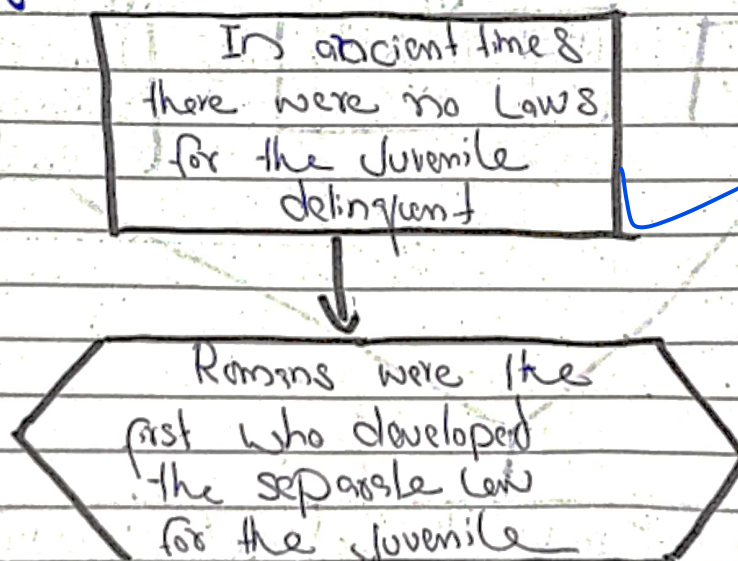 In ancient times
there were no Laws
for the Juvenile
delinquent
Romans were the
first who developed
the separate law
for the Juvenile